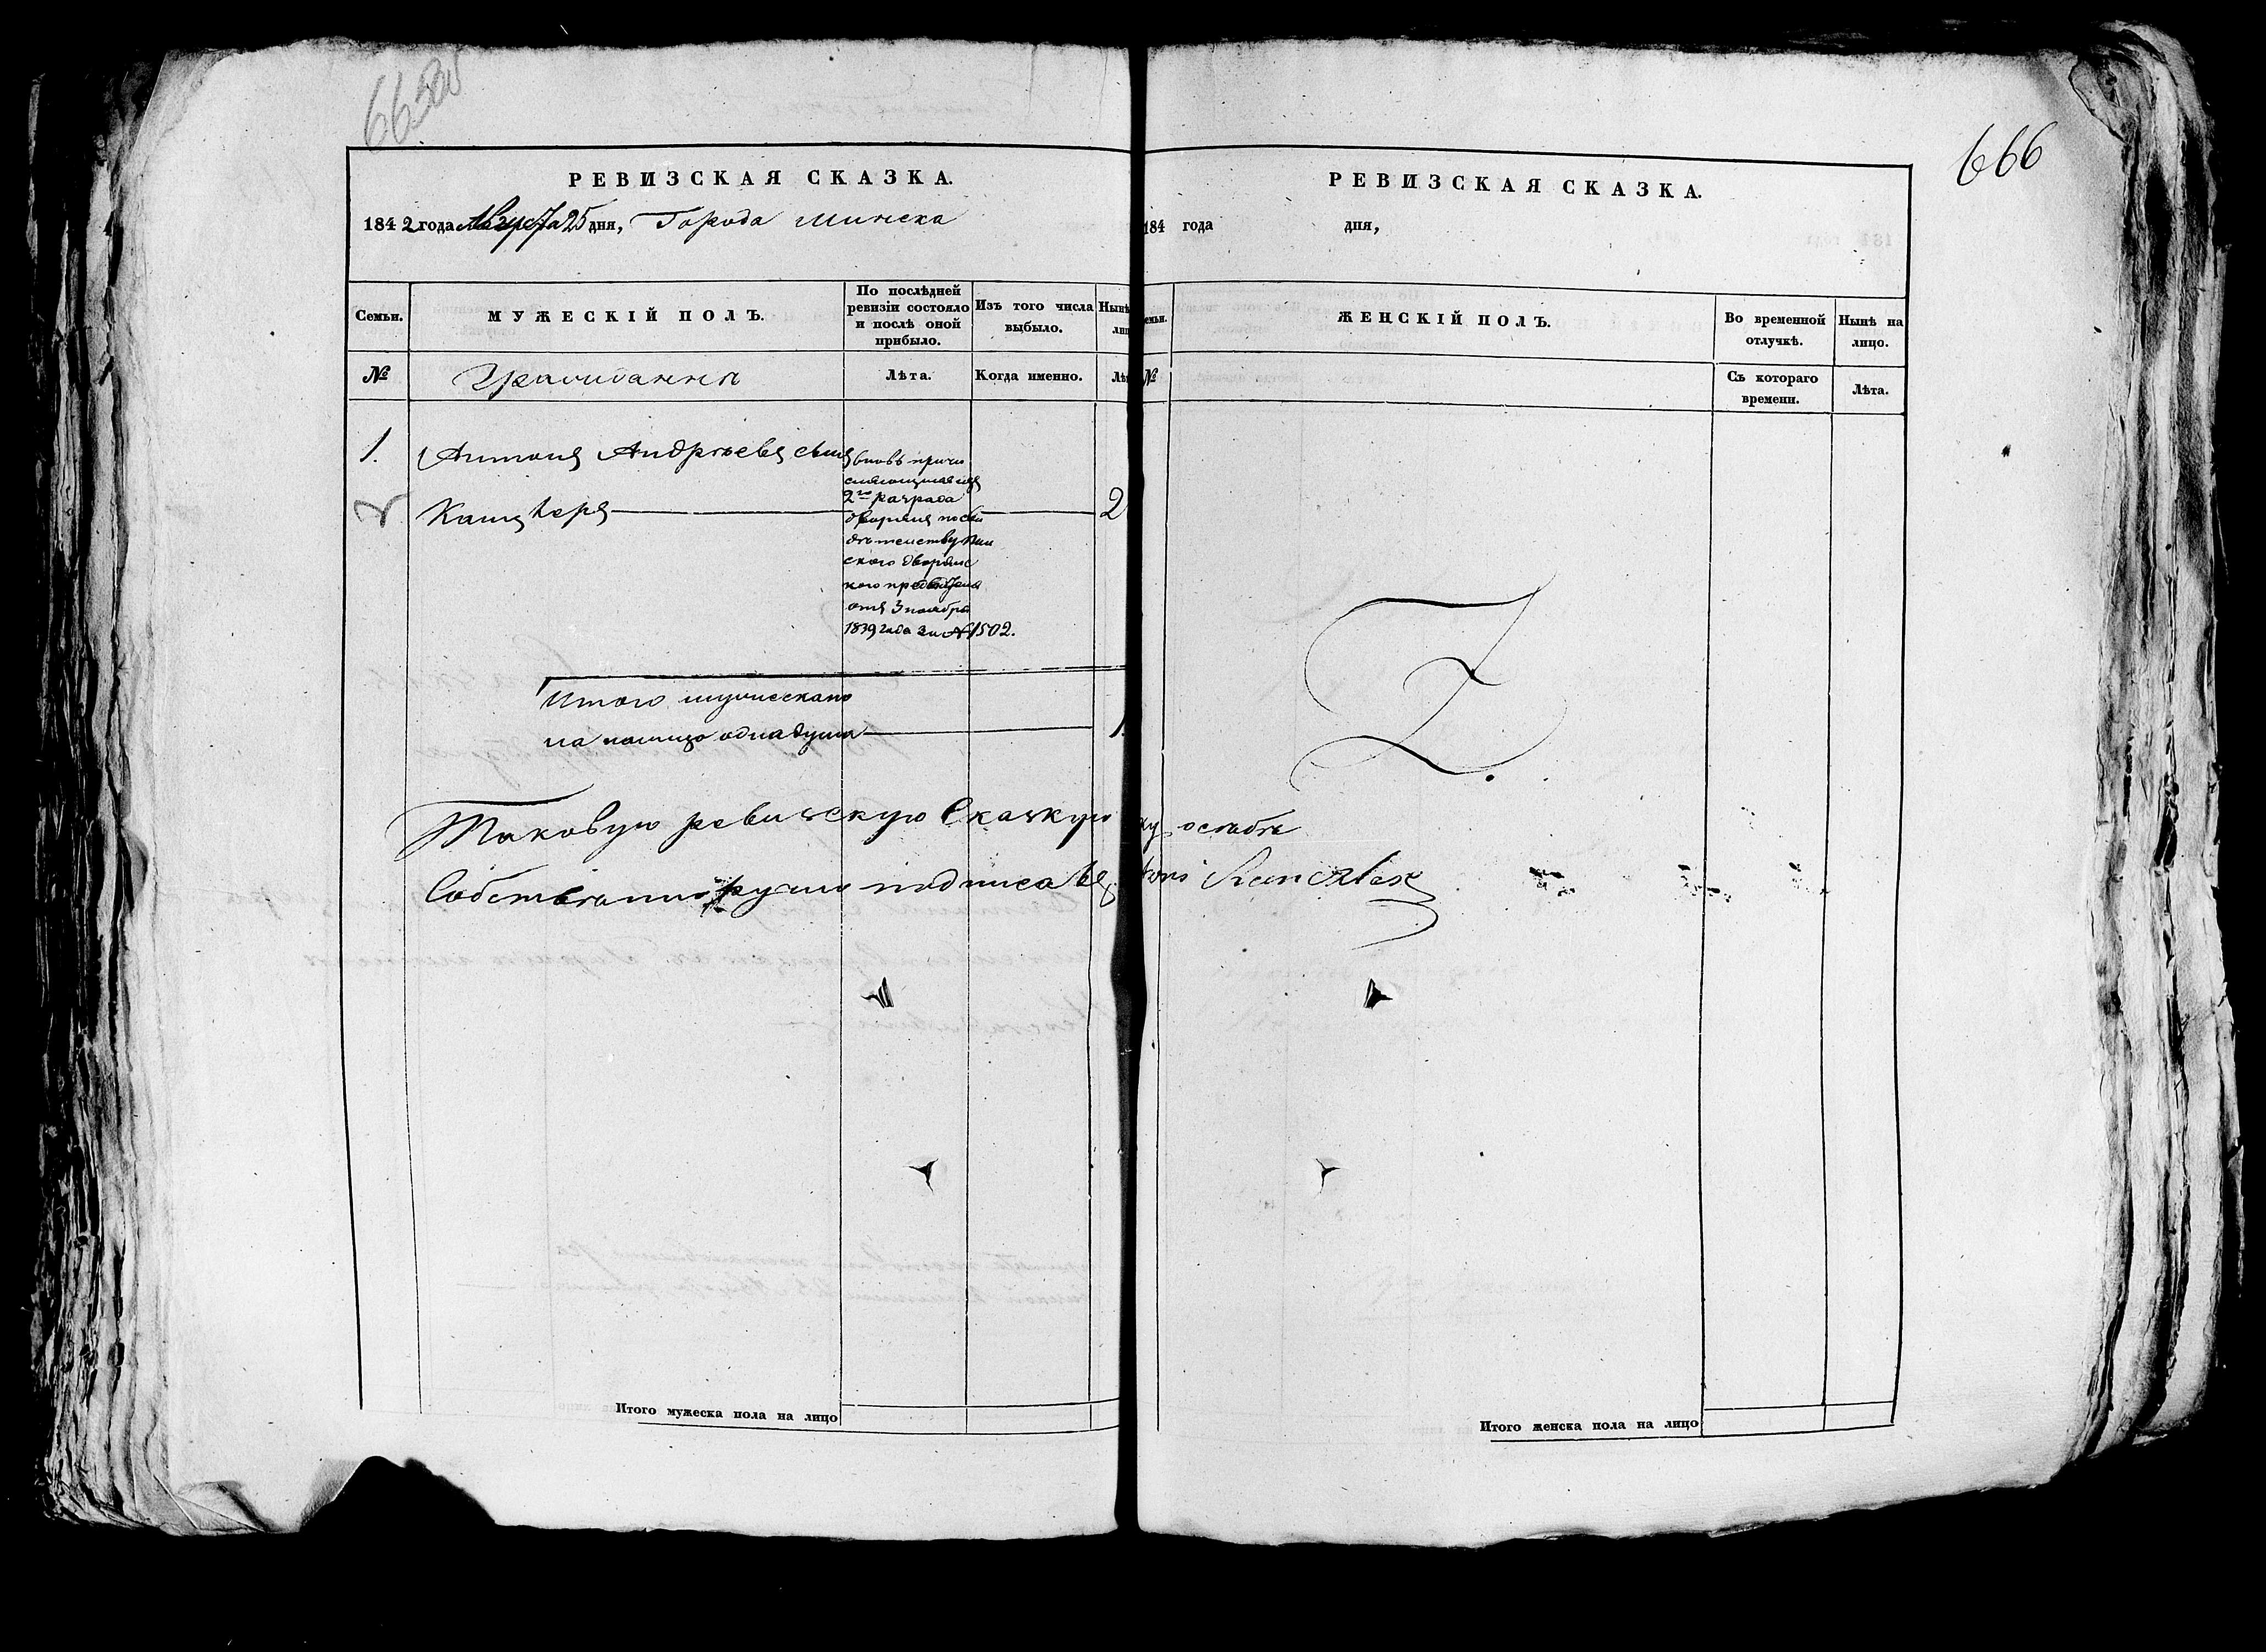 665об
РЕВИЗСКАЯ СКАЗКА.
1842 года Августа 25 дня, Города Минска
Семьи.
МУЖЕСКІЙ ПОЛЪ.
По послѣдней ревизіи состояло и послѣ оной прибыло.
Изъ того числа выбыло.
Нынѣ
№
Граждане
Лѣта.
Когда именно.
1.
Антонъ Андреевъ сынъ
Канцлеръ
2
вновь причи
2го разряда
дворянъ по сви
дѣтельству Мин
скаго дворянс
кого предводителя
отъ 3 ноября
1839 года за №1502.
Итого мужескаго
на лицо одна душа
1.
Таковую ревизскую сказку
Собственноручно подписалъ
Итого мужеска пола на лицо
666
РЕВИЗСКАЯ СКАЗКА.
184 года дня,
ЖЕНСКІЙ ПОЛЪ.
Во временной отлучкѣ.
Нынѣ на лицо.
№
Съ котораго времени.
Лѣта.
Итого женска пола на лицо